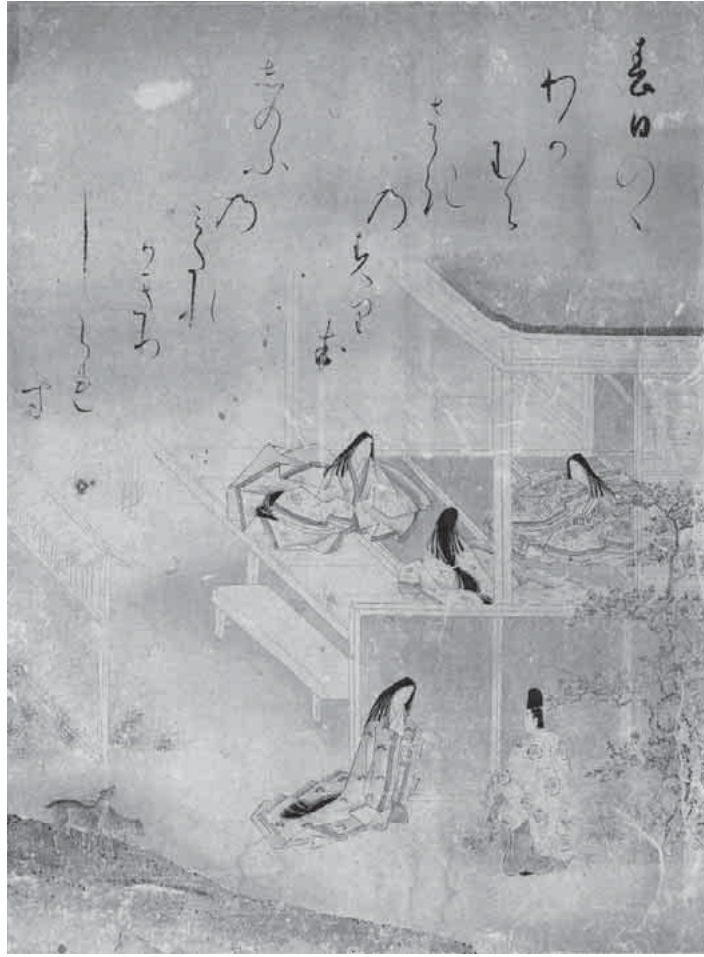 春日のゝ
わか
むら
さき
乃
すり衣
志のふ
乃
みたれ
かきり
しられ
す